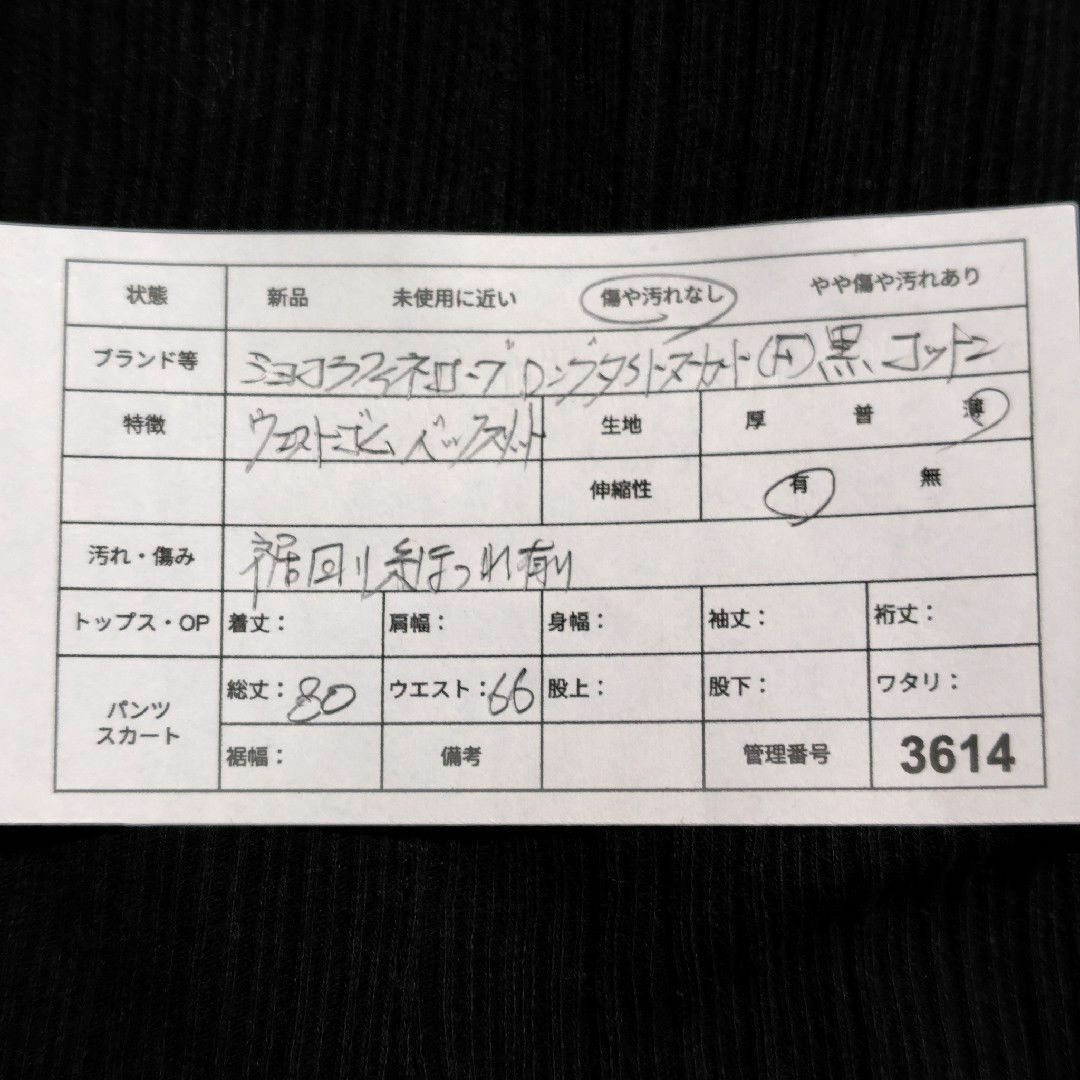 状態 新品 未使用に近い 傷や汚れなし やや傷や汚れあり
ブランド等 ショコラフィネローブ ロングタイトスカート(F)黒 コットン
特徴 ウエストゴム バックスリット 生地 厚 普 薄
伸縮性 有 無
汚れ・傷み 裾回り糸ほつれ有り
トップス・OP 着丈： 肩幅： 身幅： 袖丈： 裄丈：
パンツ スカート 総丈：80 ウエスト：66 股上： 股下： ワタリ：
裾幅： 備考 管理番号 3614